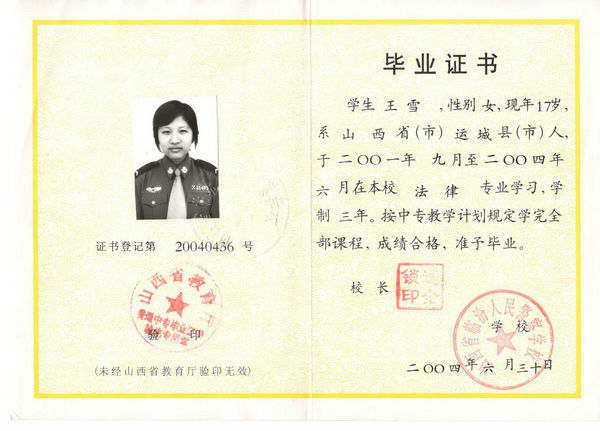 证书登记第 20040436 号
山西省教育厅
普通中专毕业证书
验印专用章
验 印
(未经山西省教育厅验印无效)
毕业证书
学生 王 雪 ,性别 女,现年17岁,
系 山 西 省(市) 运城 县(市)人,
于 二〇〇一年 九 月至 二〇〇四年
六 月在本校 法 律 专业学习,学
制 三年。按中专教学计划规定学完全
部课程,成绩合格,准予毕业。
校 长
学 校
山西省临汾人民警察学校
二〇〇四年 六 月 三十日